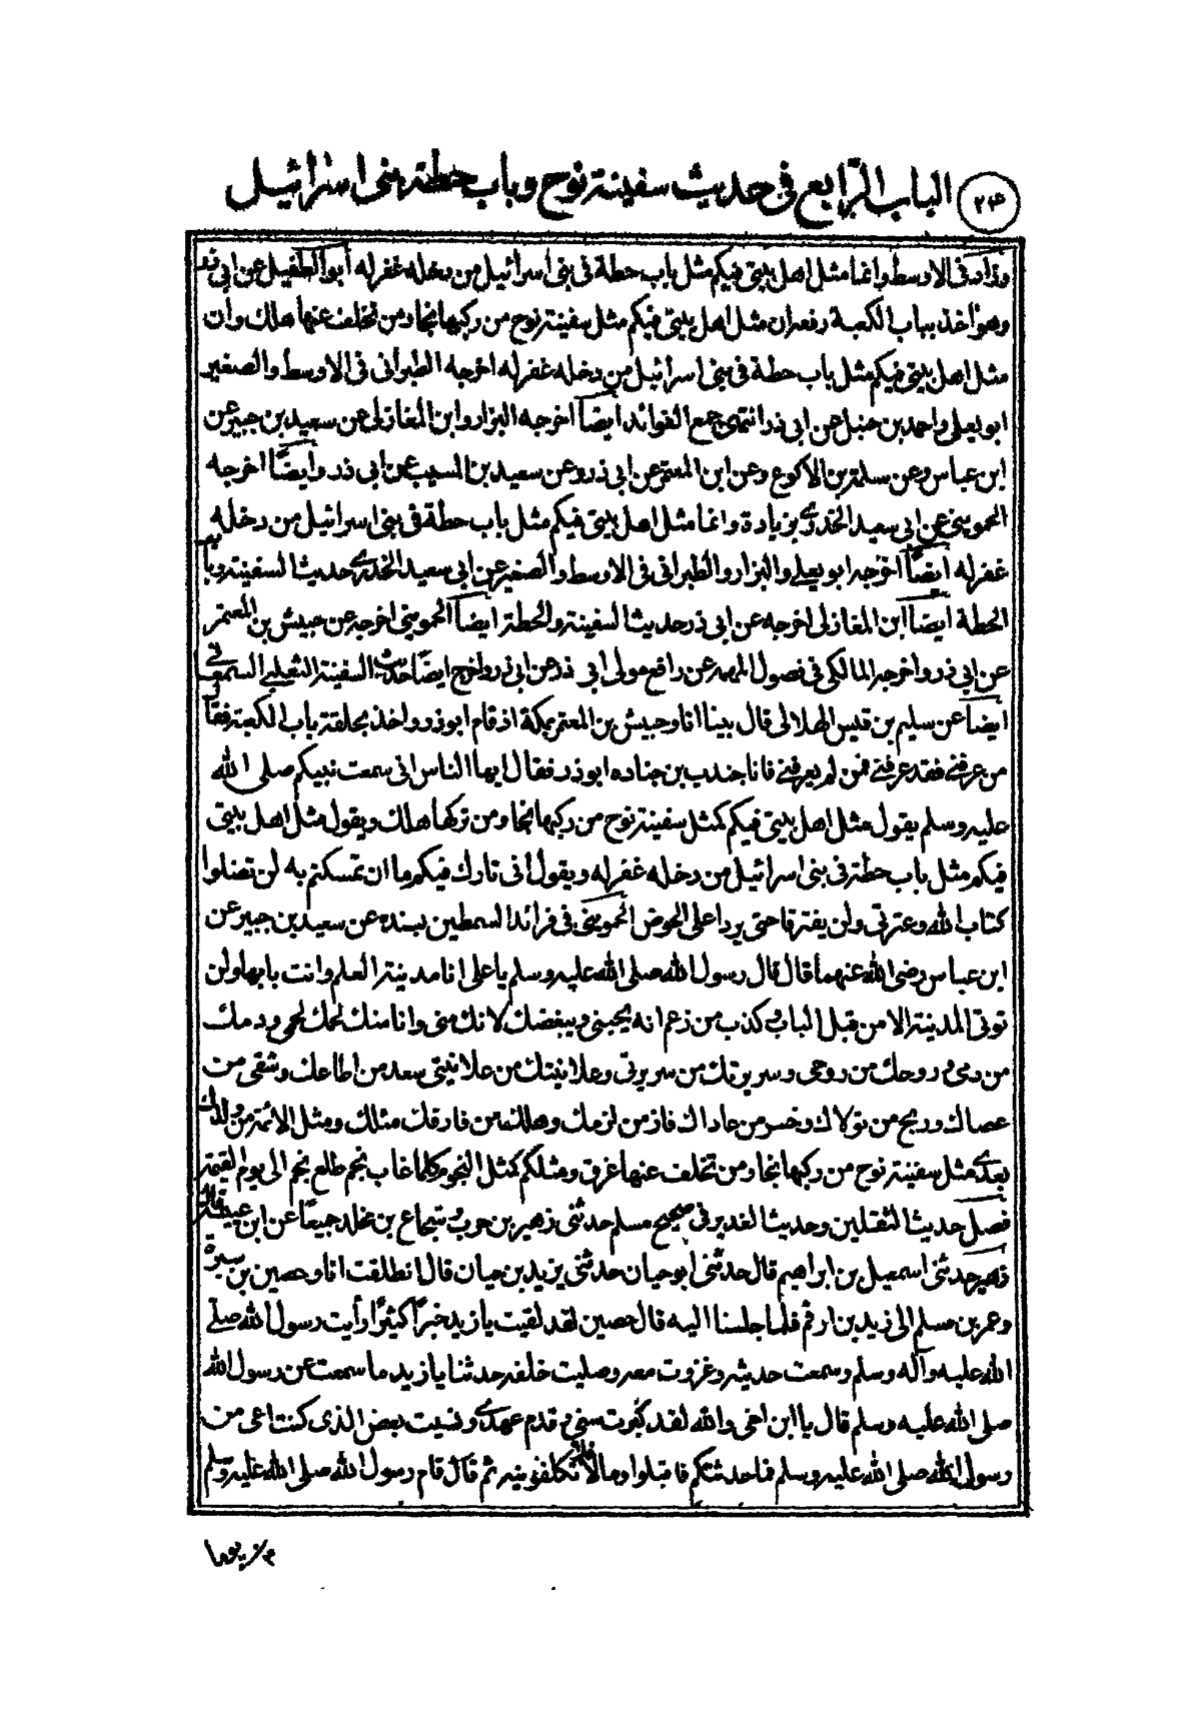 ٢٤ الباب الرّابع في حديث سفينة نوح وباب حطة بني اسرائيل
وزاد فى الاوسط وانما مثل اهل بيتي فيكم مثل باب حطة في بني اسرائيل من دخله غفر له أبو الطفيل عن ابي ذر
وهو اخذ بباب الكعبة رفعه ان مثل اهل بيتي فيكم مثل سفينة نوح من ركبها نجا ومن تخلف عنها هلك وان
مثل اهل بيتي فيكم مثل باب حطة في بني اسرائيل من دخله غفر له اخرجه الطبراني فى الاوسط والصغير
ابو يعلى واحمد بن حنبل عن ابي ذر انتهى جمع الفوائد ايضاً اخرجه البزار وابن المغازلي عن سعيد بن جبير عن
ابن عباس وعن سلمة بن الاكوع وعن ابن المعتمر عن ابي ذر وعن سعيد بن المسيب عن ابي ذر وايضاً اخرجه
الحمويني عن ابي سعيد الخدري بزيادة وانما مثل اهل بيتي فيكم مثل باب حطة في بني اسرائيل من دخله
غفر له ايضاً اخرجه ابو يعلى والبزار والطبراني فى الاوسط والصغير عن ابي سعيد الخدري حديث السفينة وباب
الحطة ايضاً ابن المغازلي اخرجه عن ابي ذر حديث السفينة والحطة ايضاً الحمويني اخرجه عن حبيش بن المعتمر
عن ابي ذر واخرجه المالكي في فصول المهمه عن رافع مولى ابي ذر عن ابي ذر واخرج ايضاً حديث السفينة الثعلبي السمعاني
ايضاً عن سليم بن قيس الهلالي قال بينا انا وحبيش بن المعتمر بمكة اذ قام ابو ذر واخذ بحلقة باب الكعبة فقال
من عرفني فقد عرفني فمن لم يعرفني فانا جندب بن جناده ابو ذر فقال ايها الناس اني سمعت نبيكم صلى الله
عليه وسلم يقول مثل اهل بيتي فيكم كمثل سفينة نوح من ركبها نجا ومن تركها هلك ويقول مثل اهل بيتي
فيكم مثل باب حطة في بني اسرائيل من دخله غفر له ويقول انى تارك فيكم ما ان تمسكتم به لن تضلوا
كتاب الله وعترتي ولن يفترقا حتى يردا على الحوض الحمويني في فرائد السمطين بسنده عن سعيد بن جبير عن
ابن عباس رضي الله عنهما قال قال رسول الله صلى الله عليه وسلم يا علي انا مدينة العلم وانت بابها ولن
توتى المدينة الا من قبل الباب وكذب من زعم انه يحبني ويبغضك لانك مني وانا منك لحمك لحمي ودمك
من دمي وروحك من روحي وسريرتك من سريرتي وعلانيتك من علانيتي سعد من اطاعك وشقي من
عصاك وربح من تولاك وخسر من عاداك فاز من لزمك وهلك من فارقك مثلك ومثل الائمة من ولدك
بعدي مثل سفينة نوح من ركبها نجا ومن تخلف عنها غرق ومثلكم كمثل النجوم كلما غاب نجم طلع نجم الى يوم القيمة
فصل حديث الثقلين وحديث الغدير في صحيح مسلم حدثني زهير بن حرب وشجاع بن مخلد جميعاً عن ابن عيينة قال
زهير حدثنى اسمعيل بن ابراهيم قال حدثنى ابو حيان حدثني يزيد بن حيان قال انطلقت انا وحصين بن سبرة
وعمر بن مسلم الى زيد بن ارقم فلما جلسنا اليه قال حصين لقد لقيت يا زيد خيراً كثيراً رأيت رسول الله صلى
الله عليه وآله وسلم وسمعت حديثه وغزوت معه وصليت خلفه حدثنا يا زيد ما سمعت عن رسول الله
صلى الله عليه وسلم قال يا ابن اخي والله لقد كبرت سني وقدم عهدي ونسيت بعض الذى كنت اعى من
رسول الله صلى الله عليه وسلم فما حدثتكم فاقبلوا وما لا فلا تكلفونيه ثم قال قام رسول الله صلى الله عليه وسلم
يوما